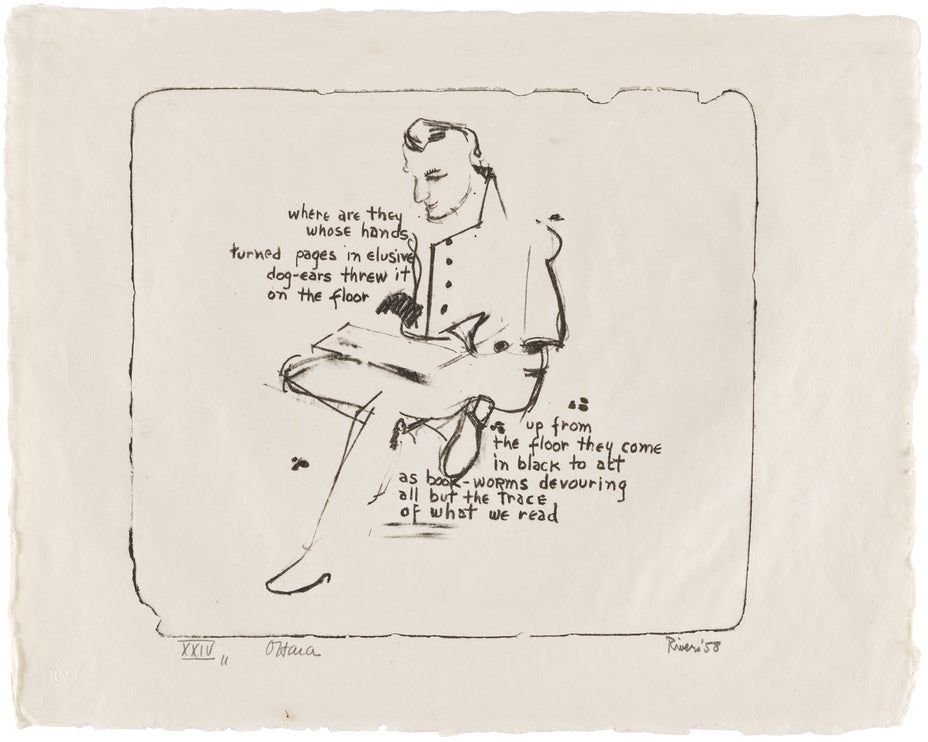 where are they
whose hands
turned pages in elusive
dog-ears threw it
on the floor
up from
the floor they come
in black to act
as book-worms devouring
all but the trace
of what we read
XXIV
11
O'Hara
Rivers '58